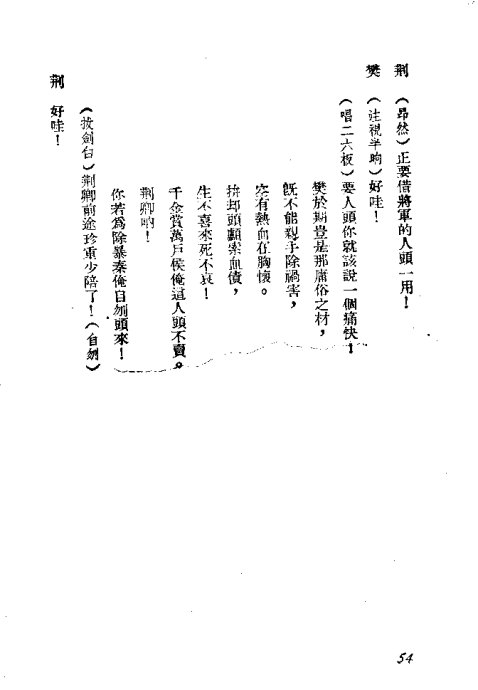 荆　（昂然）正要借將軍的人頭一用！
樊　（注視半晌）好哇！
（唱二六板）要人頭你就該說一個痛快！
樊於期豈是那庸俗之材，
既不能親手除禍害，
空有熱血在胸懷。
拚却頭顱索血債，
生不喜來死不哀！
千金賞萬戶侯俺這人頭不賣。
荆卿吶！
你若爲除暴秦俺自刎頭來！
（拔劍台）荆卿前途珍重少陪了！（自刎）
荆　好哇！
54